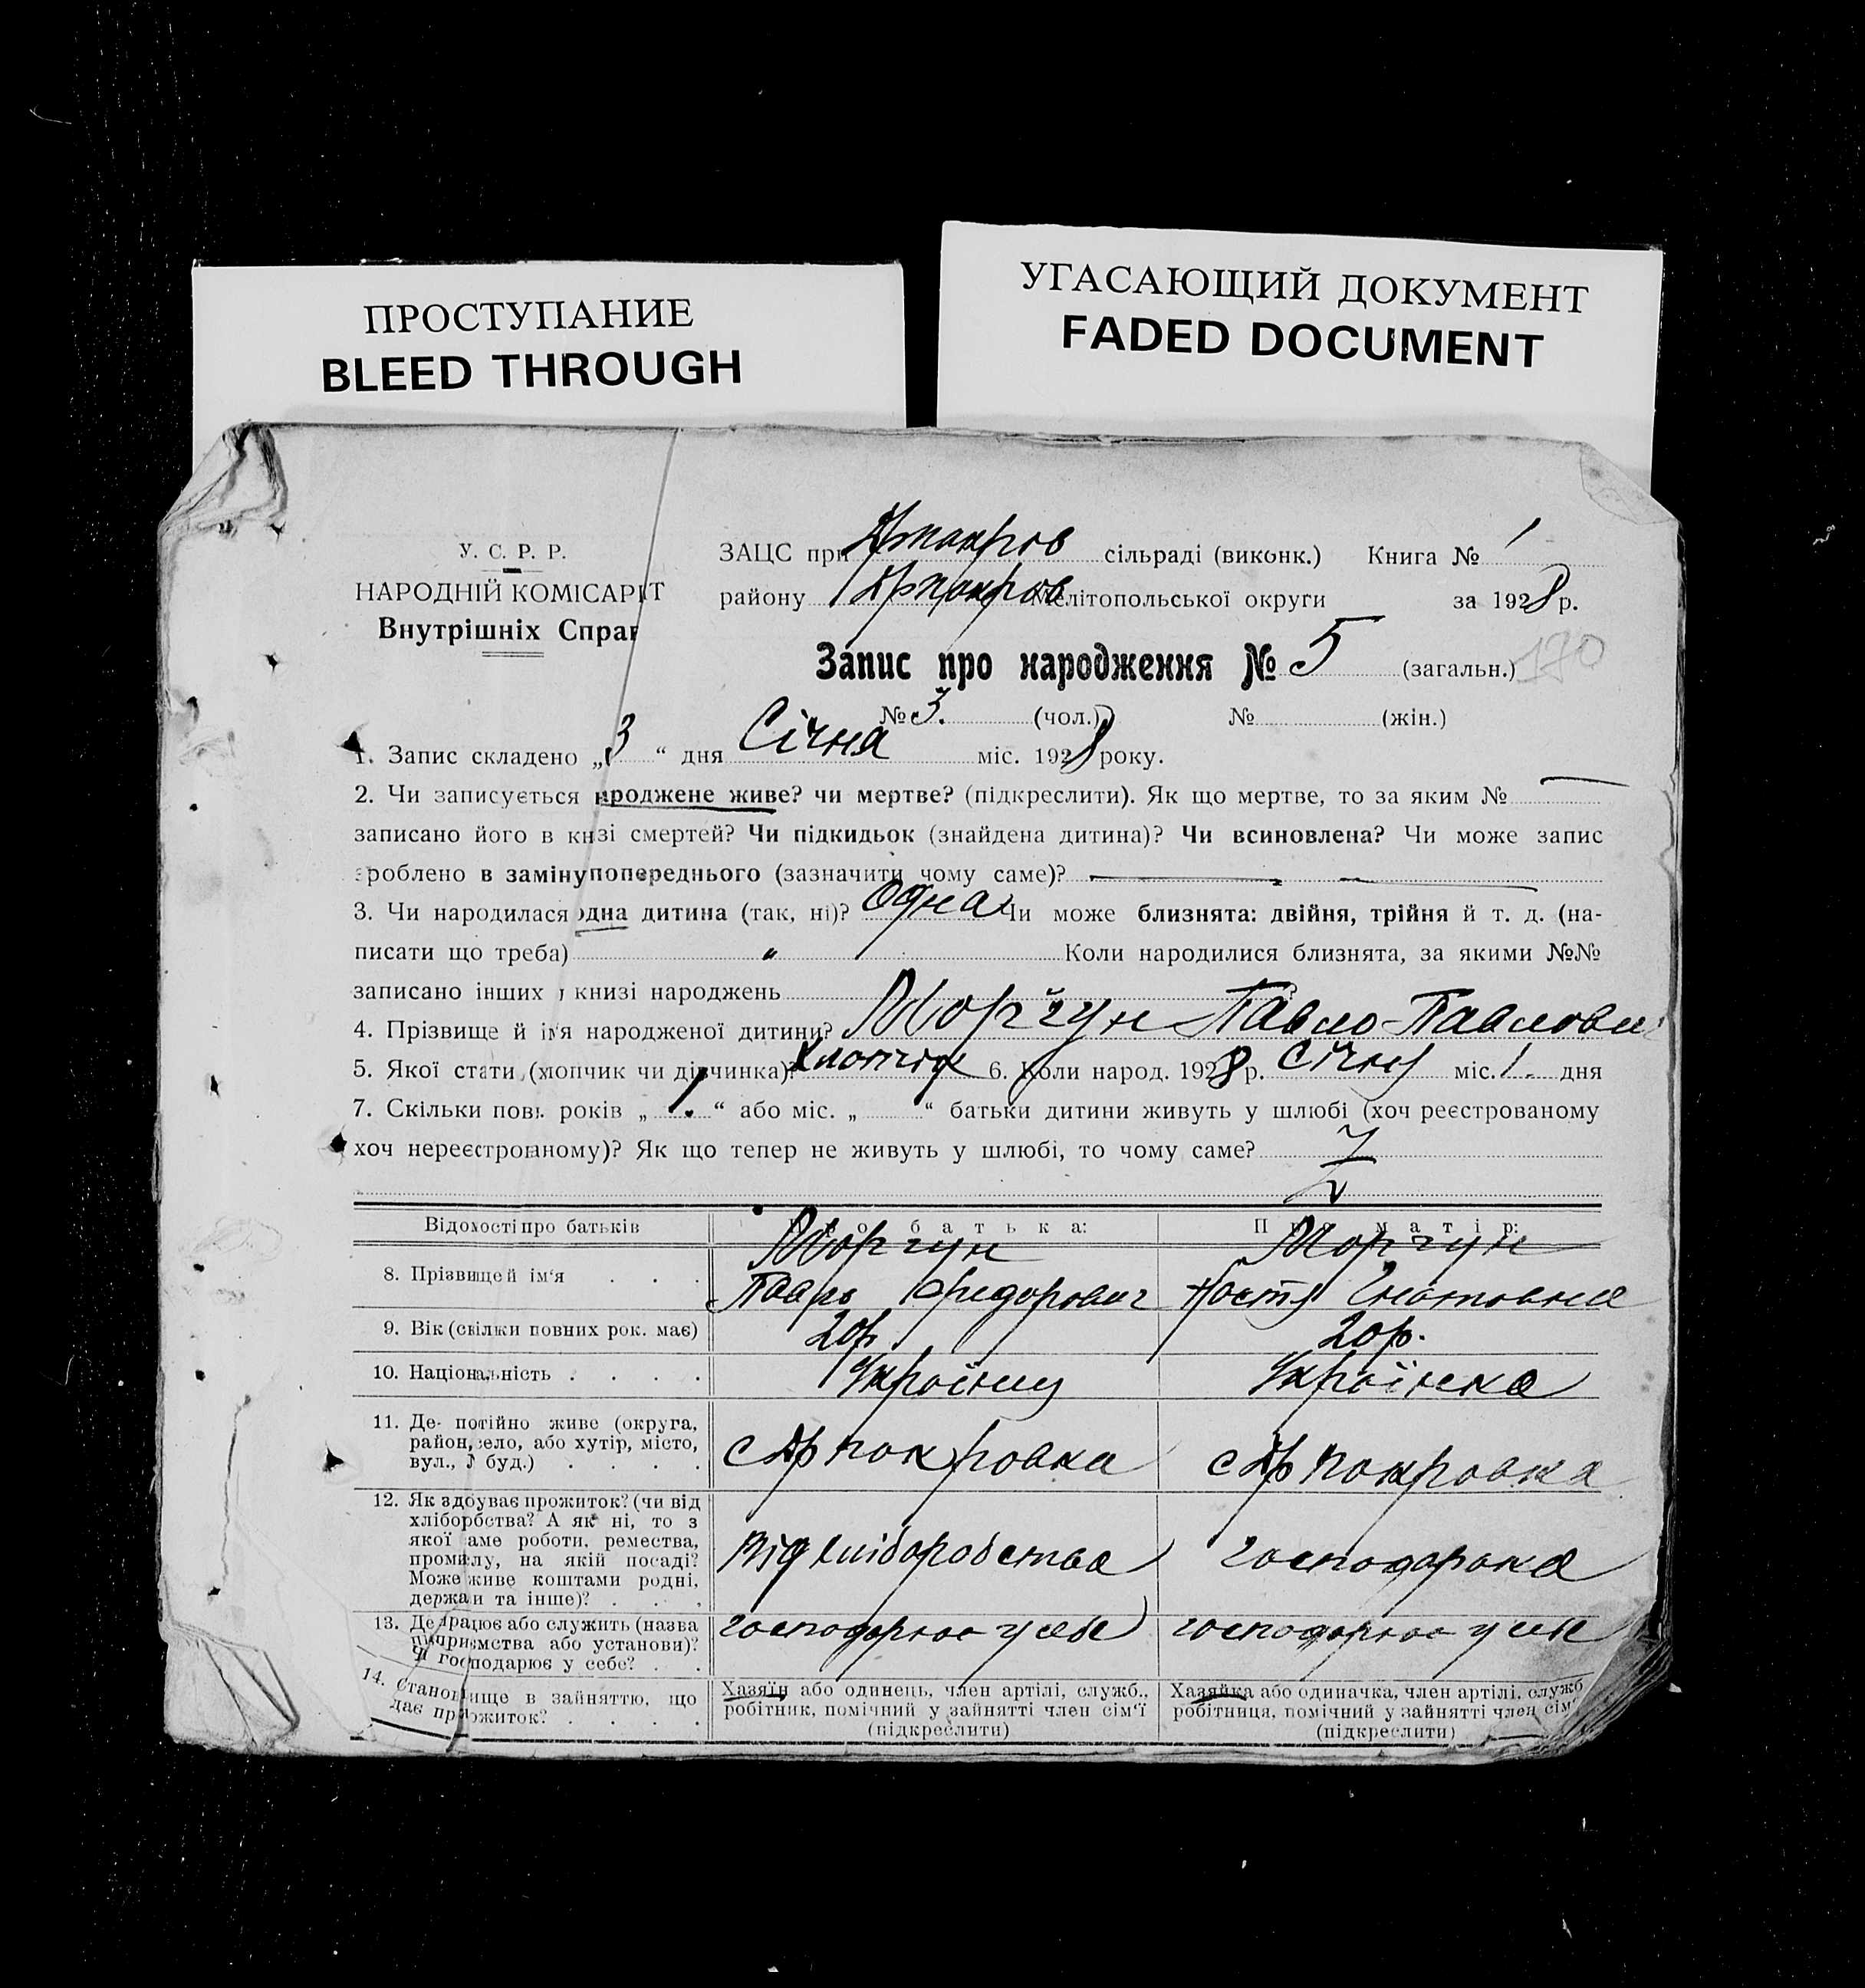 ПРОСТУПАНИЕ
BLEED THROUGH
УГАСАЮЩИЙ ДОКУМЕНТ
FADED DOCUMENT
У. С. Р. Р.
НАРОДНІЙ КОМІСАРІТ
Внутрішніх Справ
ЗАЦС при сільраді (виконк.) Книга № 1
району Мелітопольської округи за 1928 р.
Запис про народження № 5 (загальн.) 170
№ 3. (чол.) № (жін.)
1. Запис складено „3“ дня Січня міс. 1928 року.
2. Чи записується нроджене живе? чи мертве? (підкреслити). Як що мертве, то за яким №
записано його в кнзі смертей? Чи підкидьок (знайдена дитина)? Чи всиновлена? Чи може запис
зроблено в замінупопереднього (зазначити чому саме)?
3. Чи народилася одна дитина (так, ні)? одна Чи може близнята: двійня, трійня й т. д. (на-
писати що треба) „ Коли народилися близнята, за якими №№
записано інших у книзі народжень
4. Прізвище й ім'я народженої дитини? Моргун Павло Павлович
5. Якої статі (хлопчик чи дівчинка)? Хлопчик 6. Коли народ. 1928 р. Січня міс. 1. дня
7. Скільки повн. років „1.“ або міс. „ “ батьки дитини живуть у шлюбі (хоч реєстрованому
хоч нереєстрованому)? Як що тепер не живуть у шлюбі, то чому саме?
Відомості про батьків Про батька: Про матір:
8. Прізвище й ім'я . . . Моргун Моргун
Федорович Настя Гнатовна
9. Вік (скілки повних рок. має) 20р. 20р.
10. Національність . . . . Українец Українка
11. Де- постійно живе (округа,
район, село, або хутір, місто,
вул., № буд.) . . . . с покровка с покровка
12. Як здобуває прожиток? (чи від
хліборобства? А як ні, то з
якої саме роботи, ремества,
промислу, на якій посаді?
Може живе коштами родні,
держави та інше)? . . . Від хліборобства господарка
13. Де працює або служить (назва
підприємства або установи)?
Чи господарює у себе? . . господарює у себе господарює у себе
14. Становище в зайняттю, що
дає прожиток? . . . .
Хазяїн або одинець, член артілі, служб.,
робітник, помічний у зайнятті член сім'ї
(підкреслити)
Хазяйка або одиначка, член артілі, служб
робітниця, помічний у зайнятті член сім'
(підкреслити)